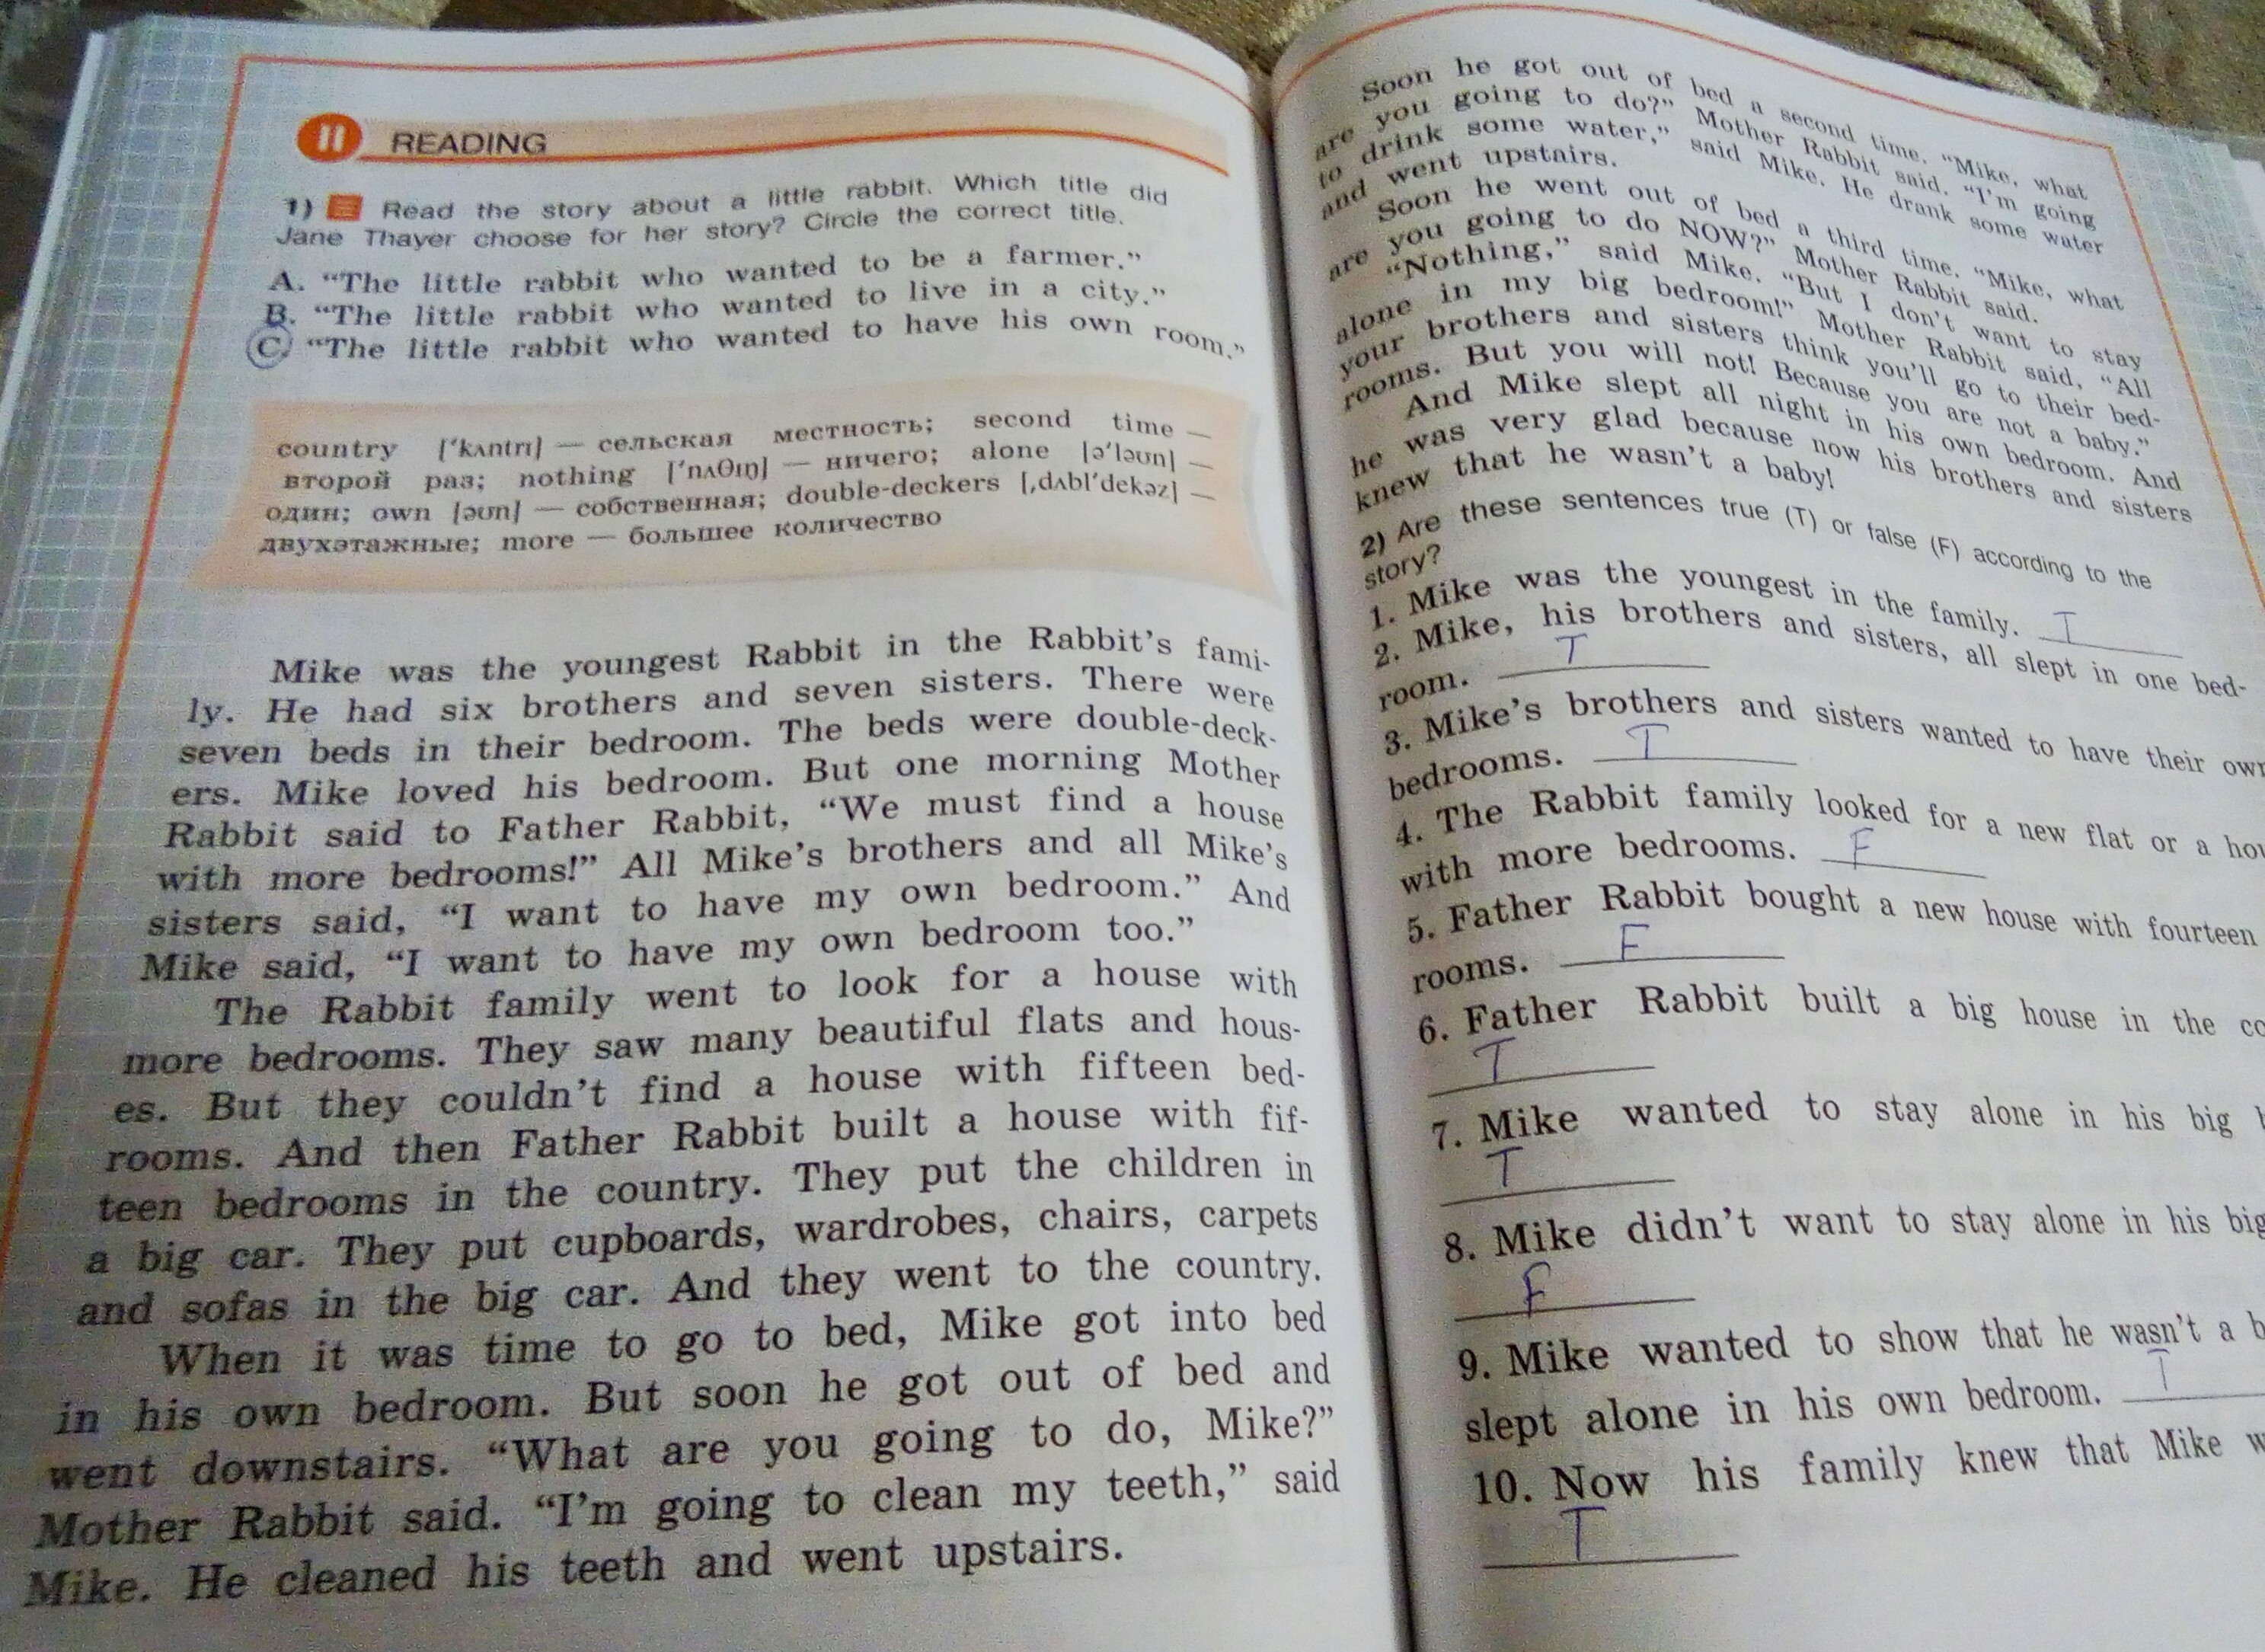 II READING
1) Read the story about a little rabbit. Which title did
Jane Thayer choose for her story? Circle the correct title.
A. “The little rabbit who wanted to be a farmer.”
B. “The little rabbit who wanted to live in a city.”
C. “The little rabbit who wanted to have his own room.”
country [ˈkʌntrɪ] — сельская местность; second time —
второй раз; nothing [ˈnʌθɪŋ] — ничего; alone [əˈləʊn] —
один; own [əʊn] — собственная; double-deckers [ˌdʌblˈdekəz] —
двухэтажные; more — большее количество
Mike was the youngest Rabbit in the Rabbit’s fami-
ly. He had six brothers and seven sisters. There were
seven beds in their bedroom. The beds were double-deck-
ers. Mike loved his bedroom. But one morning Mother
Rabbit said to Father Rabbit, “We must find a house
with more bedrooms!” All Mike’s brothers and all Mike’s
sisters said, “I want to have my own bedroom.” And
Mike said, “I want to have my own bedroom too.”
The Rabbit family went to look for a house with
more bedrooms. They saw many beautiful flats and hous-
es. But they couldn’t find a house with fifteen bed-
rooms. And then Father Rabbit built a house with fif-
teen bedrooms in the country. They put the children in
a big car. They put cupboards, wardrobes, chairs, carpets
and sofas in the big car. And they went to the country.
When it was time to go to bed, Mike got into bed
in his own bedroom. But soon he got out of bed and
went downstairs. “What are you going to do, Mike?”
Mother Rabbit said. “I’m going to clean my teeth,” said
Mike. He cleaned his teeth and went upstairs.
Soon he got out of bed a second time. “Mike, what
are you going to do?” Mother Rabbit said. “I’m going
to drink some water,” said Mike. He drank some water
and went upstairs.
Soon he went out of bed a third time. “Mike, what
are you going to do NOW?” Mother Rabbit said.
“Nothing,” said Mike. “But I don’t want to stay
alone in my big bedroom!” Mother Rabbit said, “All
your brothers and sisters think you’ll go to their bed-
rooms. But you will not! Because you are not a baby.”
And Mike slept all night in his own bedroom. And
he was very glad because now his brothers and sisters
knew that he wasn’t a baby!
2) Are these sentences true (T) or false (F) according to the
story?
1. Mike was the youngest in the family. T
2. Mike, his brothers and sisters, all slept in one bed-
room. T
3. Mike’s brothers and sisters wanted to have their own
bedrooms. T
4. The Rabbit family looked for a new flat or a hou
with more bedrooms. F
5. Father Rabbit bought a new house with fourteen
rooms. F
6. Father Rabbit built a big house in the co
T
7. Mike wanted to stay alone in his big b
T
8. Mike didn’t want to stay alone in his big
F
9. Mike wanted to show that he wasn’t a b
slept alone in his own bedroom. T
10. Now his family knew that Mike w
T